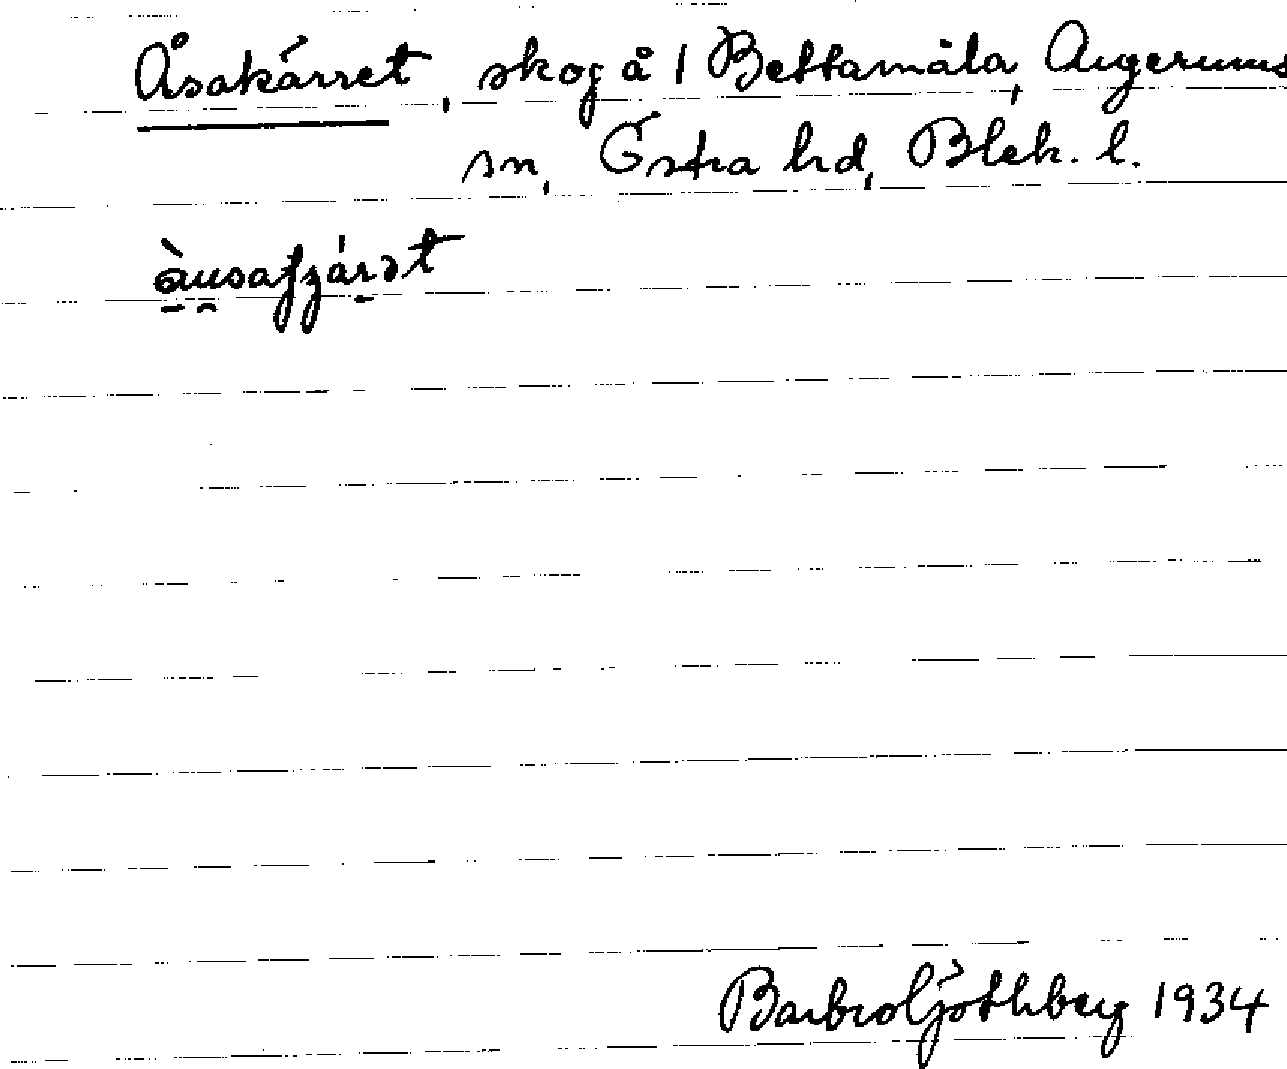 Åsakärret, skog å 1 Bettamåla, Augerums
sn, Östra hd, Blek. l.
Barbro Göthberg 1934